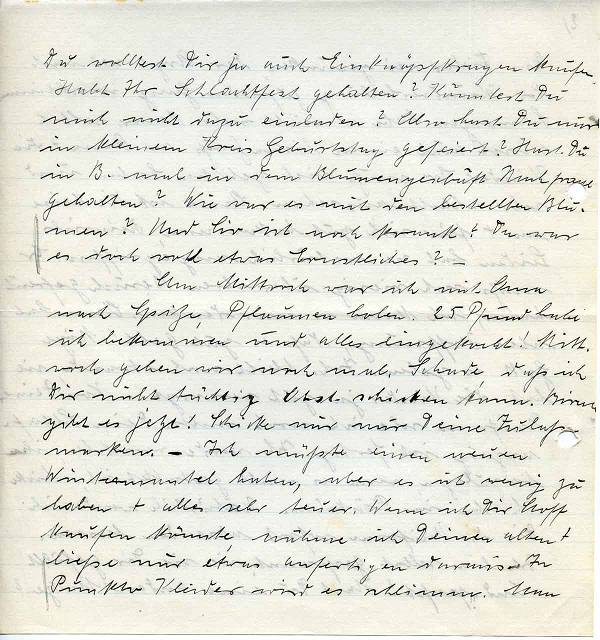 Du wolltest Dir ja auch Einknöpfkragen kaufen.
Habt Ihr Schlachtfest gehalten? Könntest Du
mich nicht dazu einladen? Also hast Du nur
in kleinem Kreis Geburtstag gefeiert? Hast Du
in B. mal in dem Blumengeschäft Nachfrage
gehalten? Wie war es mit den bestellten Blu-
men? Und ist noch krank? Da war
es doch wohl etwas Ernstliches? —
Am Mittwoch war ich mit Oma
nach Pflaumen holen. 25 Pfund habe
ich bekommen und alles eingekocht! Mitt-
woch gehen wir noch mal. Schade, daß ich
Dir nicht tüchtig Obst schicken kann. Birnen
gibt es jetzt! Schicke mir nur Deine
marken. — Ich müßte einen neuen
Wintermantel haben, aber es ist wenig zu
haben + alles sehr teuer. Wenn ich Dir Stoff
kaufen könnte, nähme ich Deinen alten +
ließe mir etwas anfertigen daraus. In
Punkto Kleider wird es schlimm. Man